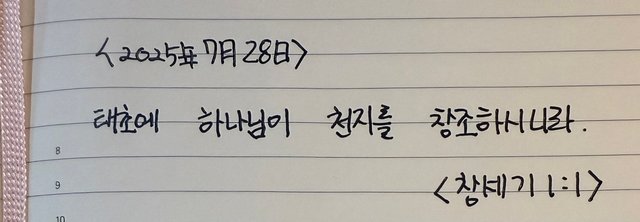 <2025年 7月 28日>
태초에 하나님이 천지를 창조하시니라.
8
9 <창세기 1:1>
10